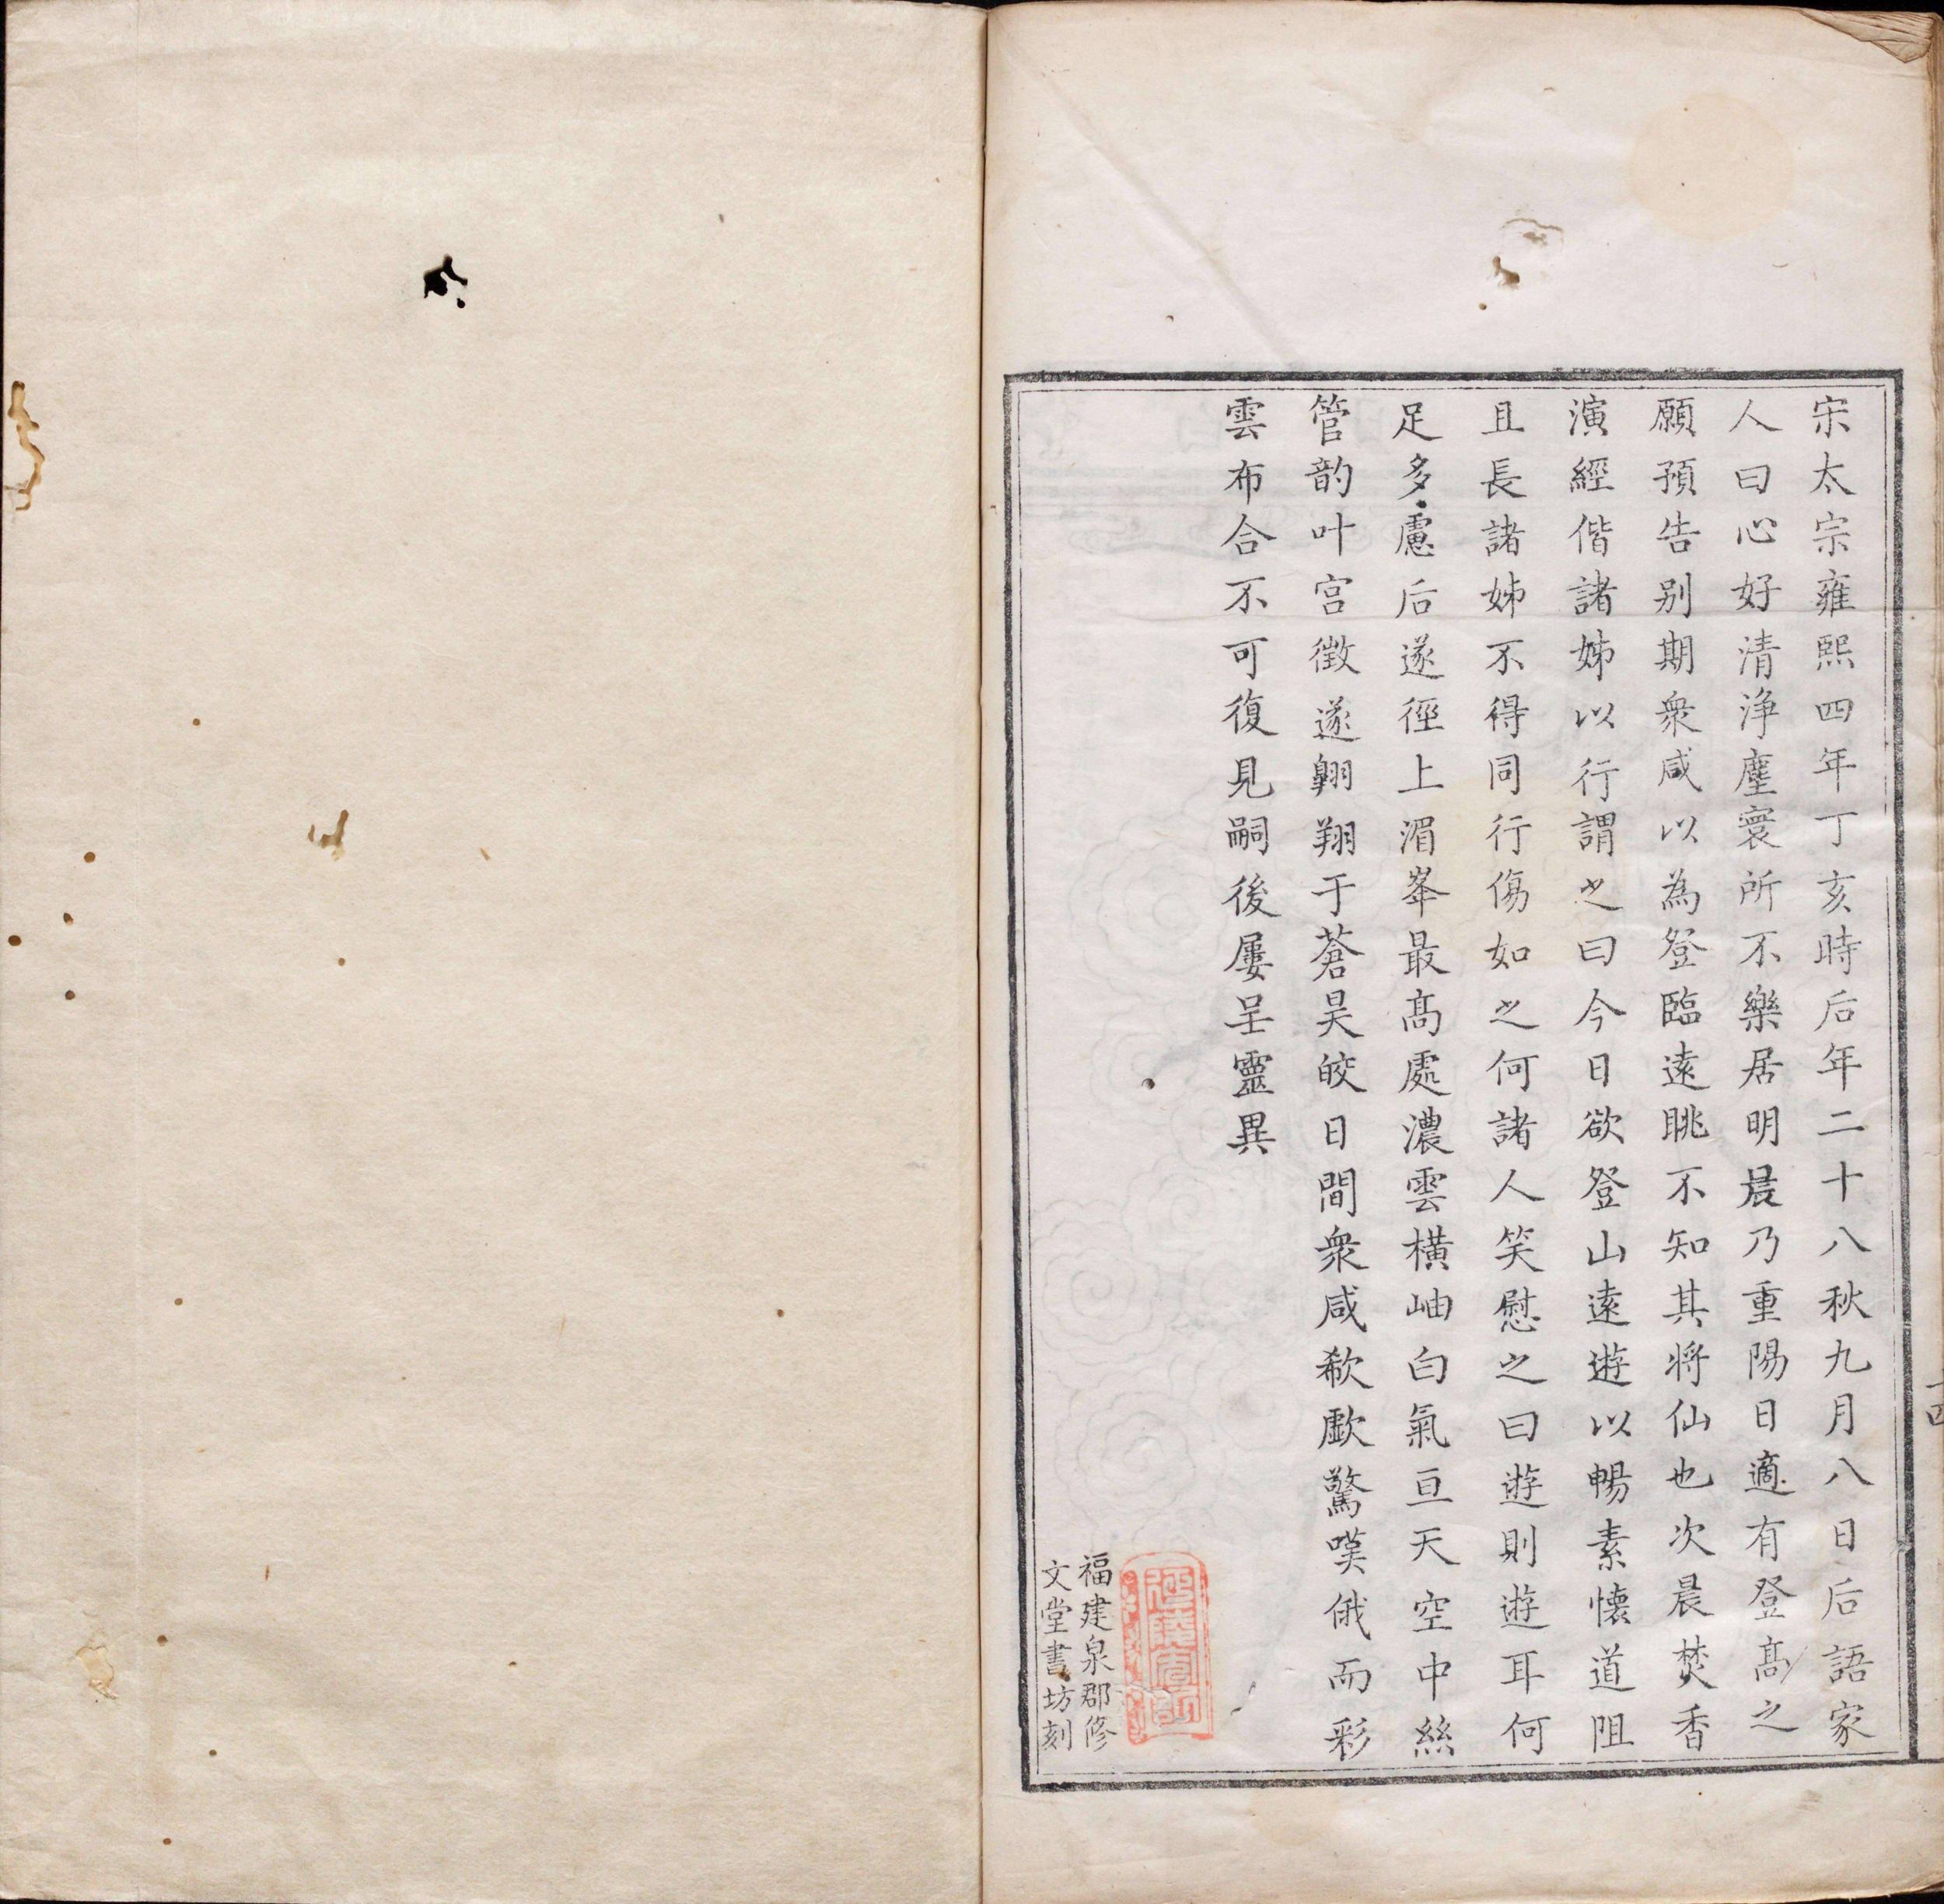 宋太宗雍熙四年丁亥時后年二十八秋九月八日后語家
人曰心好清淨塵寰所不樂居明晨乃重陽日適有登髙之
願預告别期衆咸以為登臨逺眺不知其將仙也次晨焚香
演經偕諸姊以行謂之曰今日欲登山逺遊以暢素懐道阻
且長諸姊不得同行傷如之何諸人笑慰之曰遊則遊耳何
足多慮后遂徑上湄峯最髙處濃雲横岫白氣亘天空中絲
管韵叶宫徵遂翱翔于蒼昊皎日間衆咸欷歔驚嘆俄而彩
雲布合不可復見嗣後屢呈靈異
福建泉郡修
文堂書坊刻